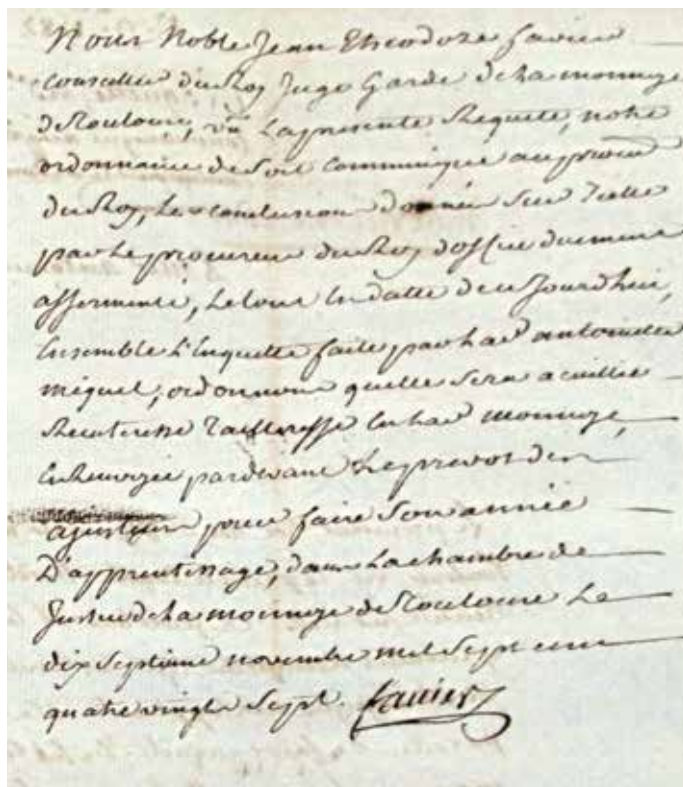 Nous Noble Jean Theodore favier
Conseiller du Roy Juge Garde de la monnoye
de Toulouse, vû La presente Requete, notre
ordonnance de soit communiqué au procur
du Roy, les conclusions données sur icelle
par le procureur du Roy d'office duement
assermenté, le tout en datte de ce Jourdhui,
Ensemble L'Enquette faite par lad antoinette
miquel, ordonnons quelle sera accuillie
Recuteresse Tailleresse en lad monnoye,
Et Renvoyée pardevant le prevot des
ajusteurs pour faire son année
D'apprentissage, dans La chambre de
Justice de la monnoye de Toulouse Le
dix septieme novembre mil sept cens
quatre vingts sept. Favier